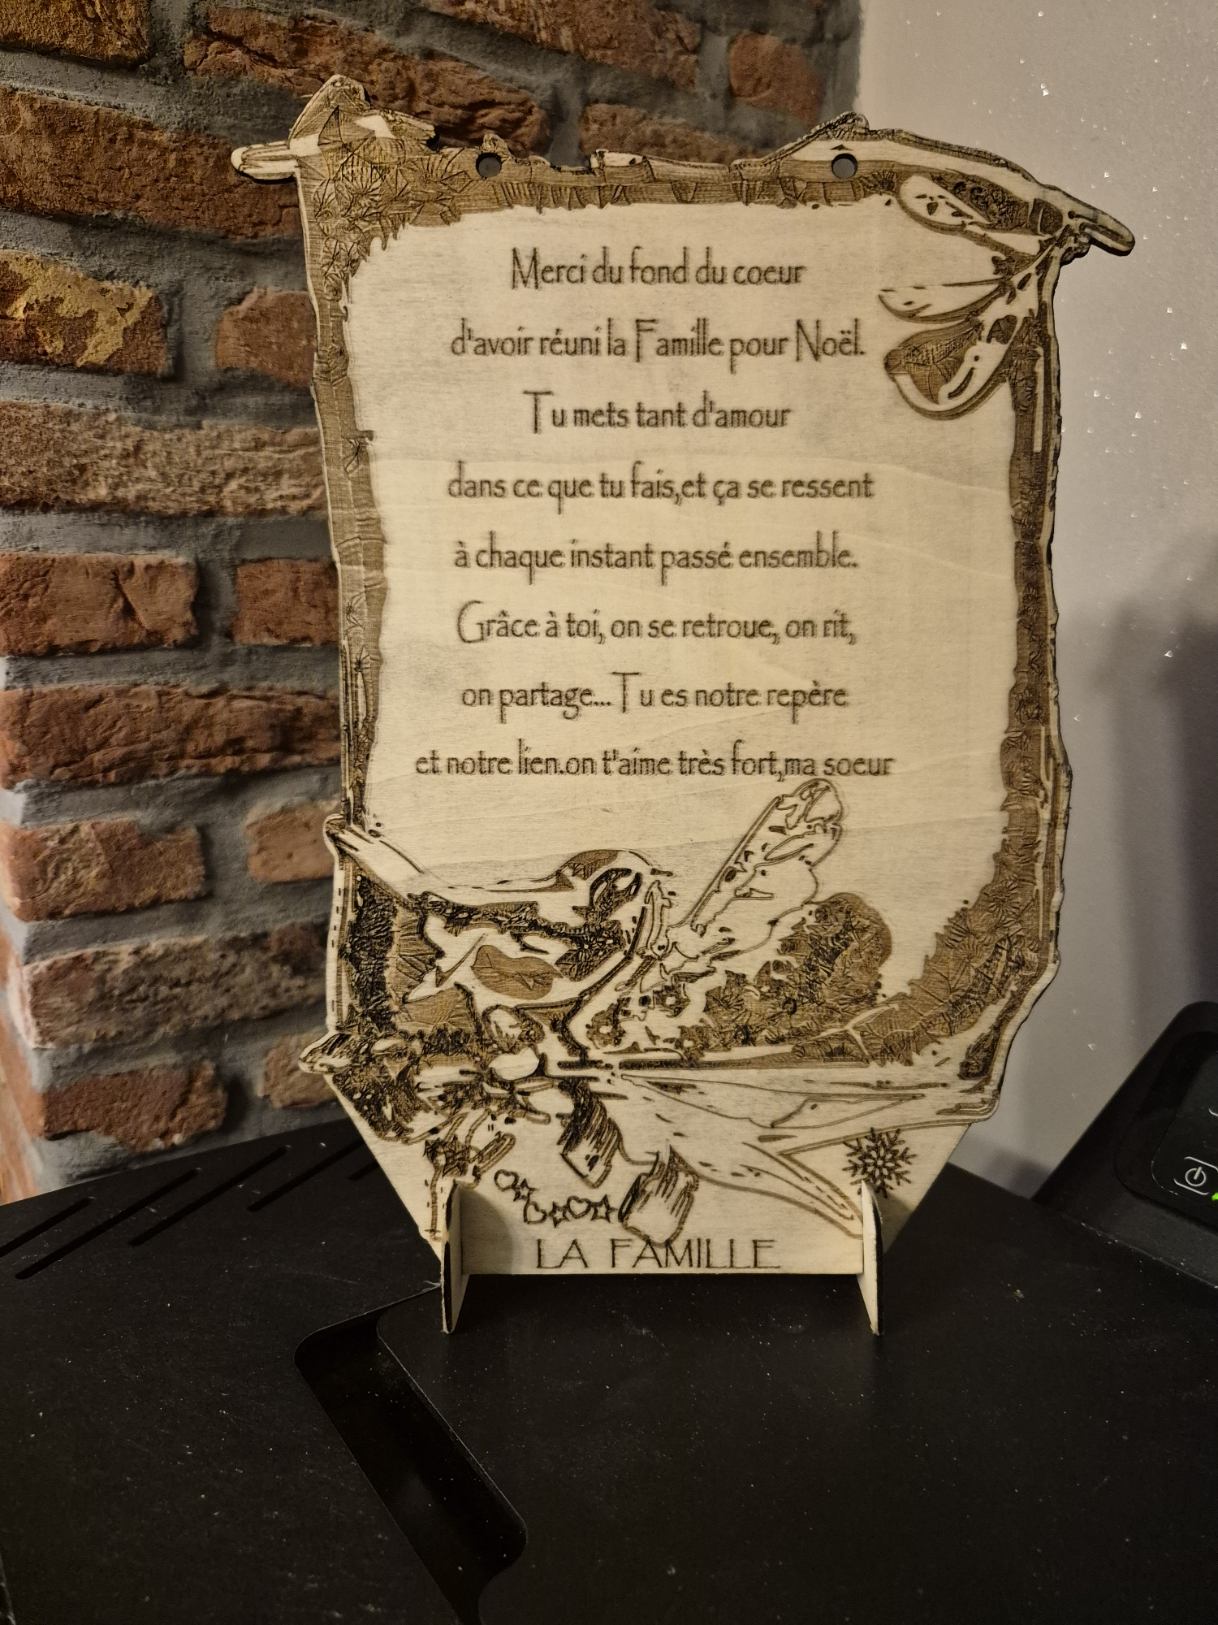 Merci du fond du coeur
d'avoir réuni la Famille pour Noël.
Tu mets tant d'amour
dans ce que tu fais,et ça se ressent
à chaque instant passé ensemble.
Grâce à toi, on se retroue, on rit,
on partage... Tu es notre repère
et notre lien.on t'aime très fort,ma soeur
LA FAMILLE